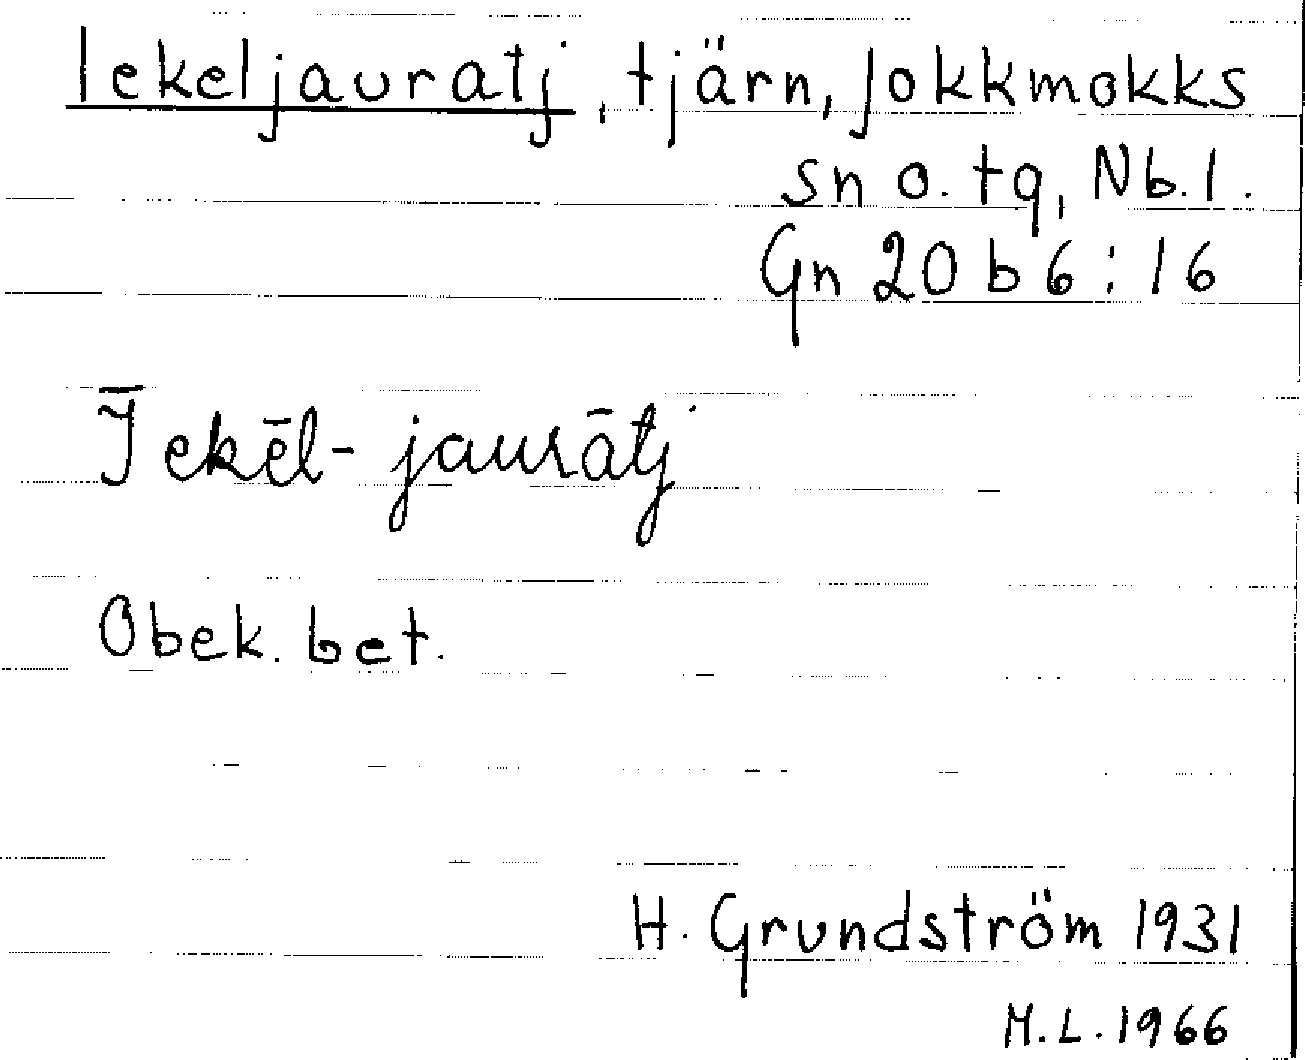 Iekeljauratj, tjärn, Jokkmokks
sn o. tg, Nb. l.
Gn 20 b 6 : 16
Īekēl-jaurātj
Obek. bet.
H. Grundström 1931
M.L. 1966